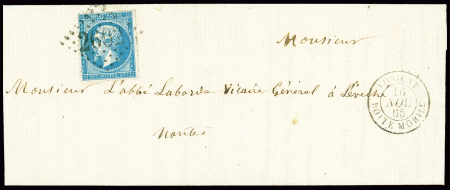 Monsieur
Monsieur L'abbé Laborde Vicaire Général à Lévêché
Nantes
16
65
BOITE MOBILE